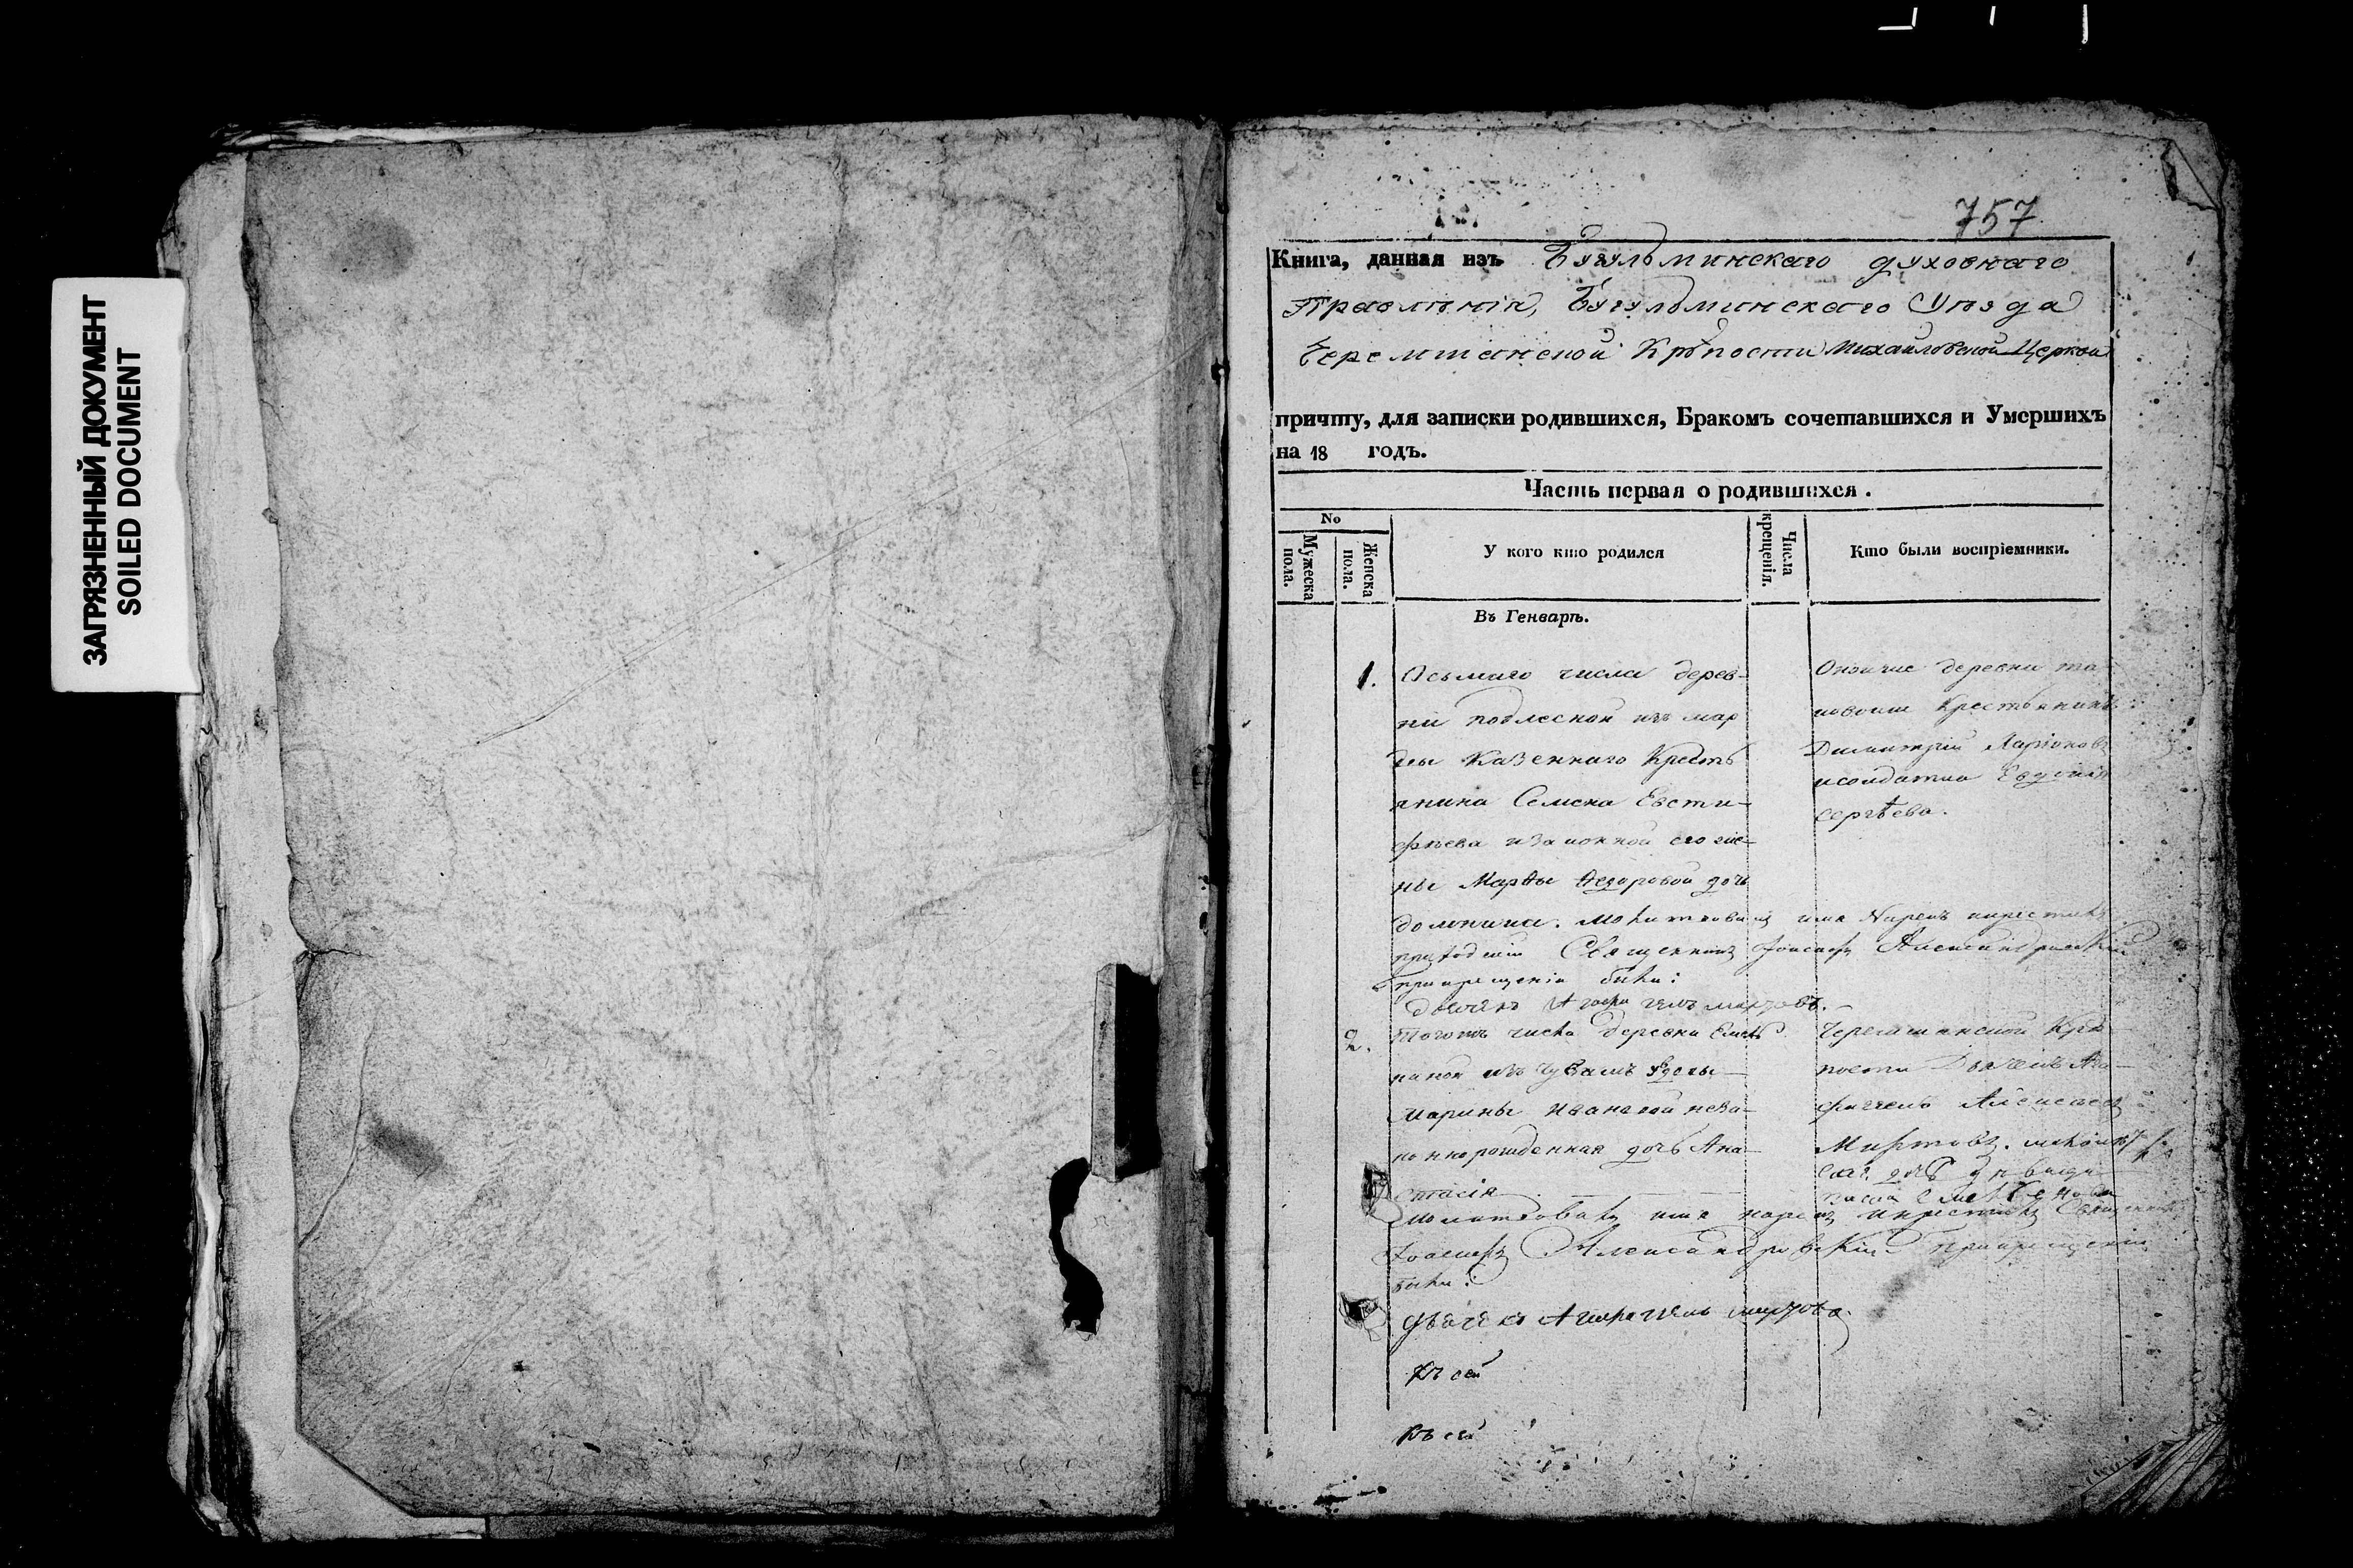 ЗАГРЯЗНЕННЫЙ ДОКУМЕНТ
SOILED DOCUMENT
757
Книга, данная изъ Бугульминскаго духовнаго
Правленія, Бугульминскаго Уезда
Черемшанской Крѣпости Михайловской Церкви
причту, для записки родившихся, Бракомъ сочетавшихся и Умершихъ
на 18 годъ.
Часть первая о родившихся.
No
Мужеска пола.
Женска пола.
У кого кто родился
Числа крещенія.
Кто были воспріемники.
Въ Генварѣ.
1.
Осьмаго числа дерев-
ни подлесной изъ мор
двы Казеннаго Кресть
янина Семена Евсти-
фѣева изаконной его же-
ны Марѳы Ѳедоровой дочь
домника. молитвовалъ имя Нарекъ икрестилъ
приходскій Священникъ Іоасафъ Александровскій
прикрещеніи были:
дьячекъ Агафангелъ миртовъ.
Оноиже деревни та
крестьянинъ
Димитрій Ларіоновъ
исолдатка Евдокія
Сергѣева.
2.
Тогожъ числа деревни
изъ Чувашъ вдовы
Марины Ивановой неза-
коннорожденная дочь Ана-
стасія
молитвовалъ имя нарекъ икрестилъ Священникъ
Іоасафъ Александровскій прикрещеніи
были:
дьячекъ Агафангелъ миртовъ
Черемшанской Крѣ
пости Дьячекъ Ага-
фангелъ Алексѣевъ
Миртовъ.
дочь
Къ сей
Къ сей